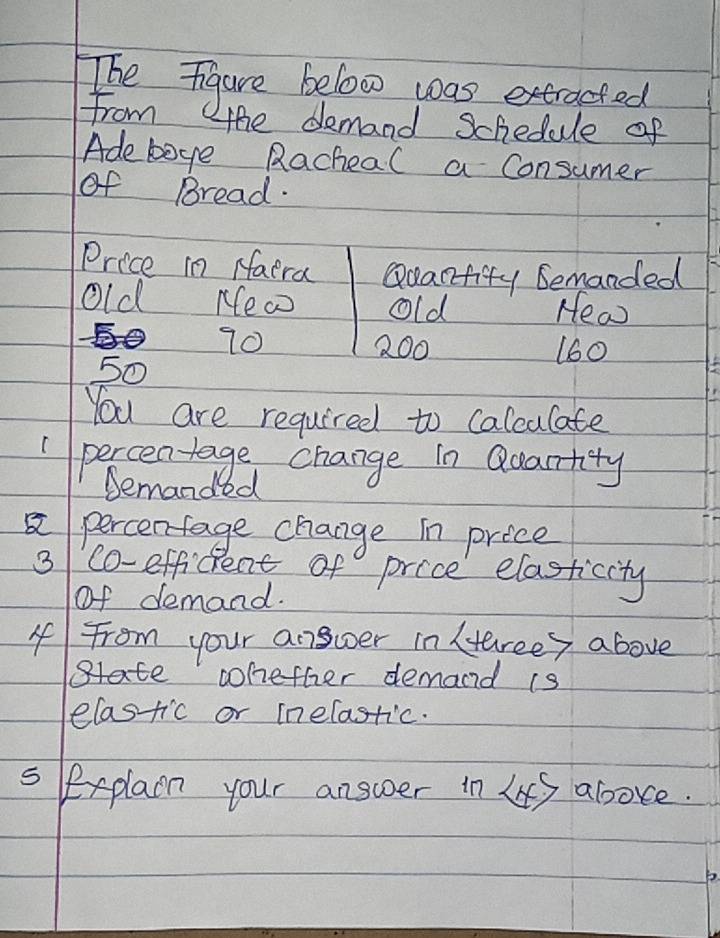 The Figure below was extracted
from the demand Schedule of
Adeboye Racheal a Consumer
Of Bread.
Price in Naira | Quantity Demanded
Old New Old New
50 90 200 160
50
You are required to calculate
1 percentage change in Quantity
Demanded
2 percentage change in price
3 Co-efficient of price elasticity
Of demand.
4 From your answer in <three> above
State whether demand is
elastic or inelastic.
5 Explain your answer in <4> above.